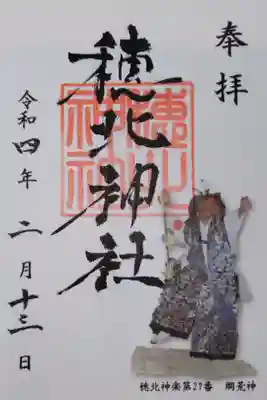 奉拝
穂北神社
令和四年二月十三日
穂北神楽第27番 綱荒神